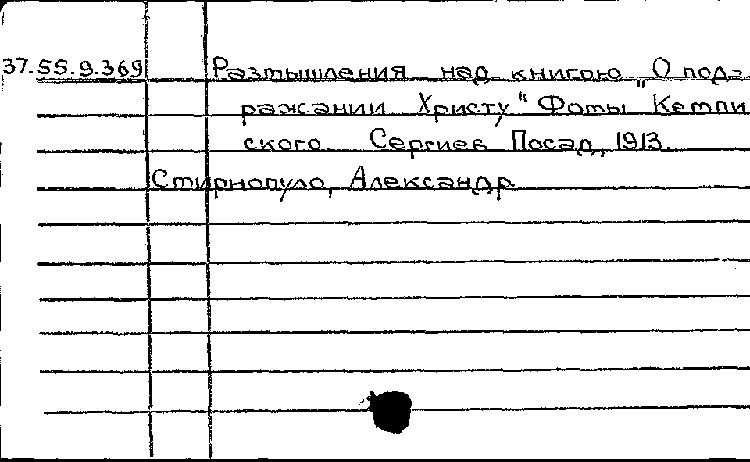 37.55.9.369 Размышления над книгою „О под-
ражании Христу“ Фомы Кемпи
ского. Сергиев Посад, 1913.
Стирнопуло, Александр